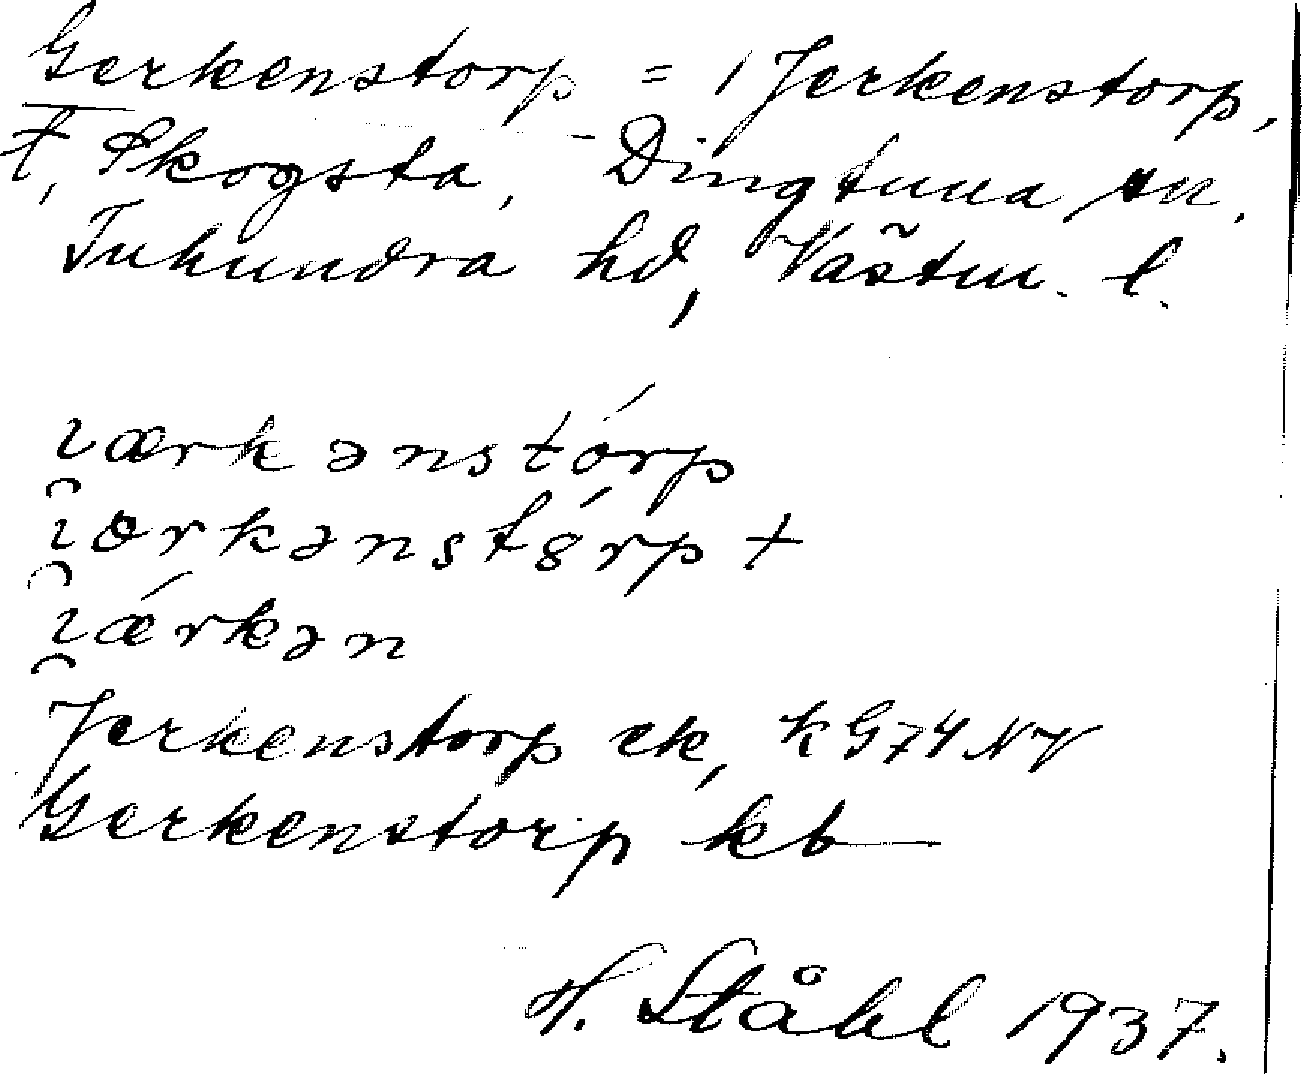 Gerkenstorp = / Jerkenstorp,
t, Skogsta, Dingtuna sn.
Tuhundra hd, Västm. l.
i̯ærkənstórp
i̯ərkənstórp +
i̯ǽrkən
Jerkenstorp ek, kG74NV
Gerkenstorp kb
H. Ståhl 1937.